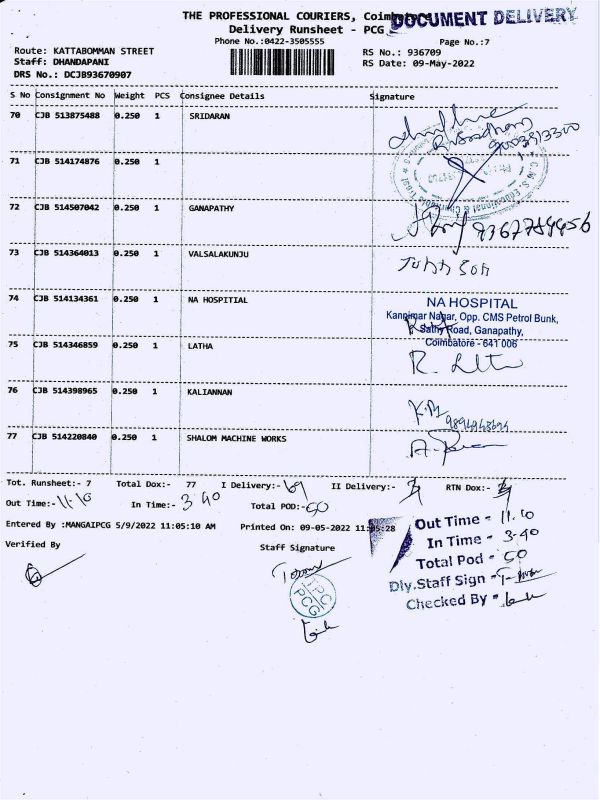 THE PROFESSIONAL COURIERS, Coimbatore
DOCUMENT DELIVERY
Delivery Runsheet - PCG
Phone No.:0422-3505555
Page No.:7
Route: KATTABOMMAN STREET
RS No.: 936709
Staff: DHANDAPANI
RS Date: 09-May-2022
DRS No.: DCJB93670907
S No Consignment No Weight PCS Consignee Details Signature
70 CJB 513875488 0.250 1 SRIDARAN
71 CJB 514174876 0.250 1
72 CJB 514507042 0.250 1 GANAPATHY
73 CJB 514364013 0.250 1 VALSALAKUNJU
74 CJB 514134361 0.250 1 NA HOSPITIAL
NA HOSPITAL
Kannimar Nagar, Opp. CMS Petrol Bunk,
Sathy Road, Ganapathy,
Coimbatore - 641 006
75 CJB 514346859 0.250 1 LATHA
76 CJB 514398965 0.250 1 KALIANNAN
77 CJB 514220840 0.250 1 SHALOM MACHINE WORKS
Tot. Runsheet:- 7 Total Dox:- 77 I Delivery:- 69 II Delivery:- RTN Dox:-
Out Time:- 11.10 In Time:- 3.40 Total POD:- 50
Entered By :MANGAIPCG 5/9/2022 11:05:10 AM Printed On: 09-05-2022 11:05:28
Verified By Staff Signature
Out Time - 11.10
In Time - 3-40
Total Pod - 50
Dly.Staff Sign -
Checked By -
TPC
PCG